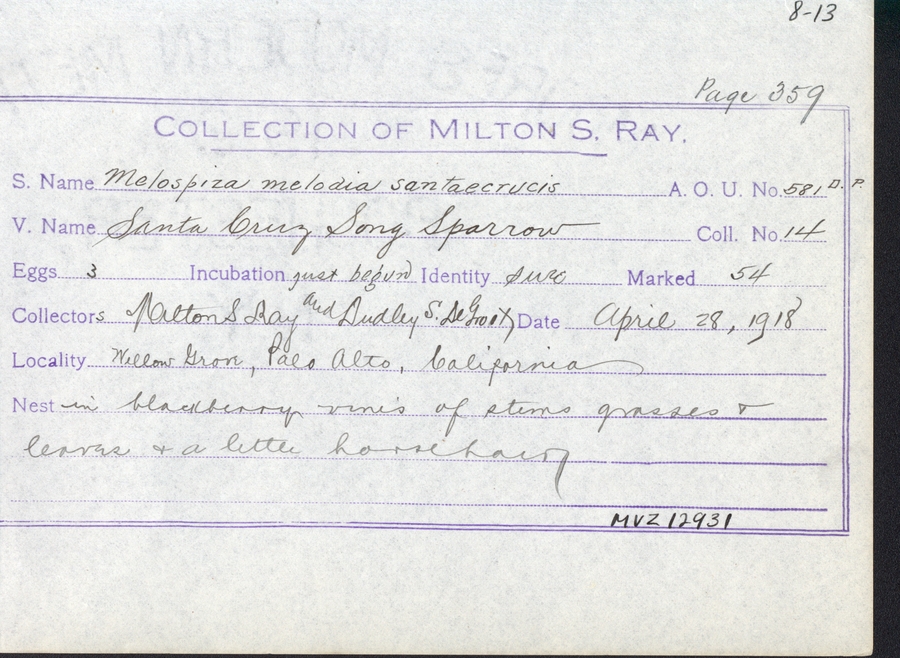 8-13
Page 359
COLLECTION OF MILTON S. RAY.
S. Name Melospiza melodia santaecrucis A. O. U. No. 581 D. P.
V. Name Santa Cruz Song Sparrow Coll. No. 14
Eggs 3 Incubation just begun Identity sure Marked 54
Collectors Milton S Ray and Dudley S. DeGroot, Date April 28, 1918
Locality Willow Grove, Palo Alto, California
Nest in blackberry vines of stems grasses &
leaves & a little horsehair
MVZ 12931